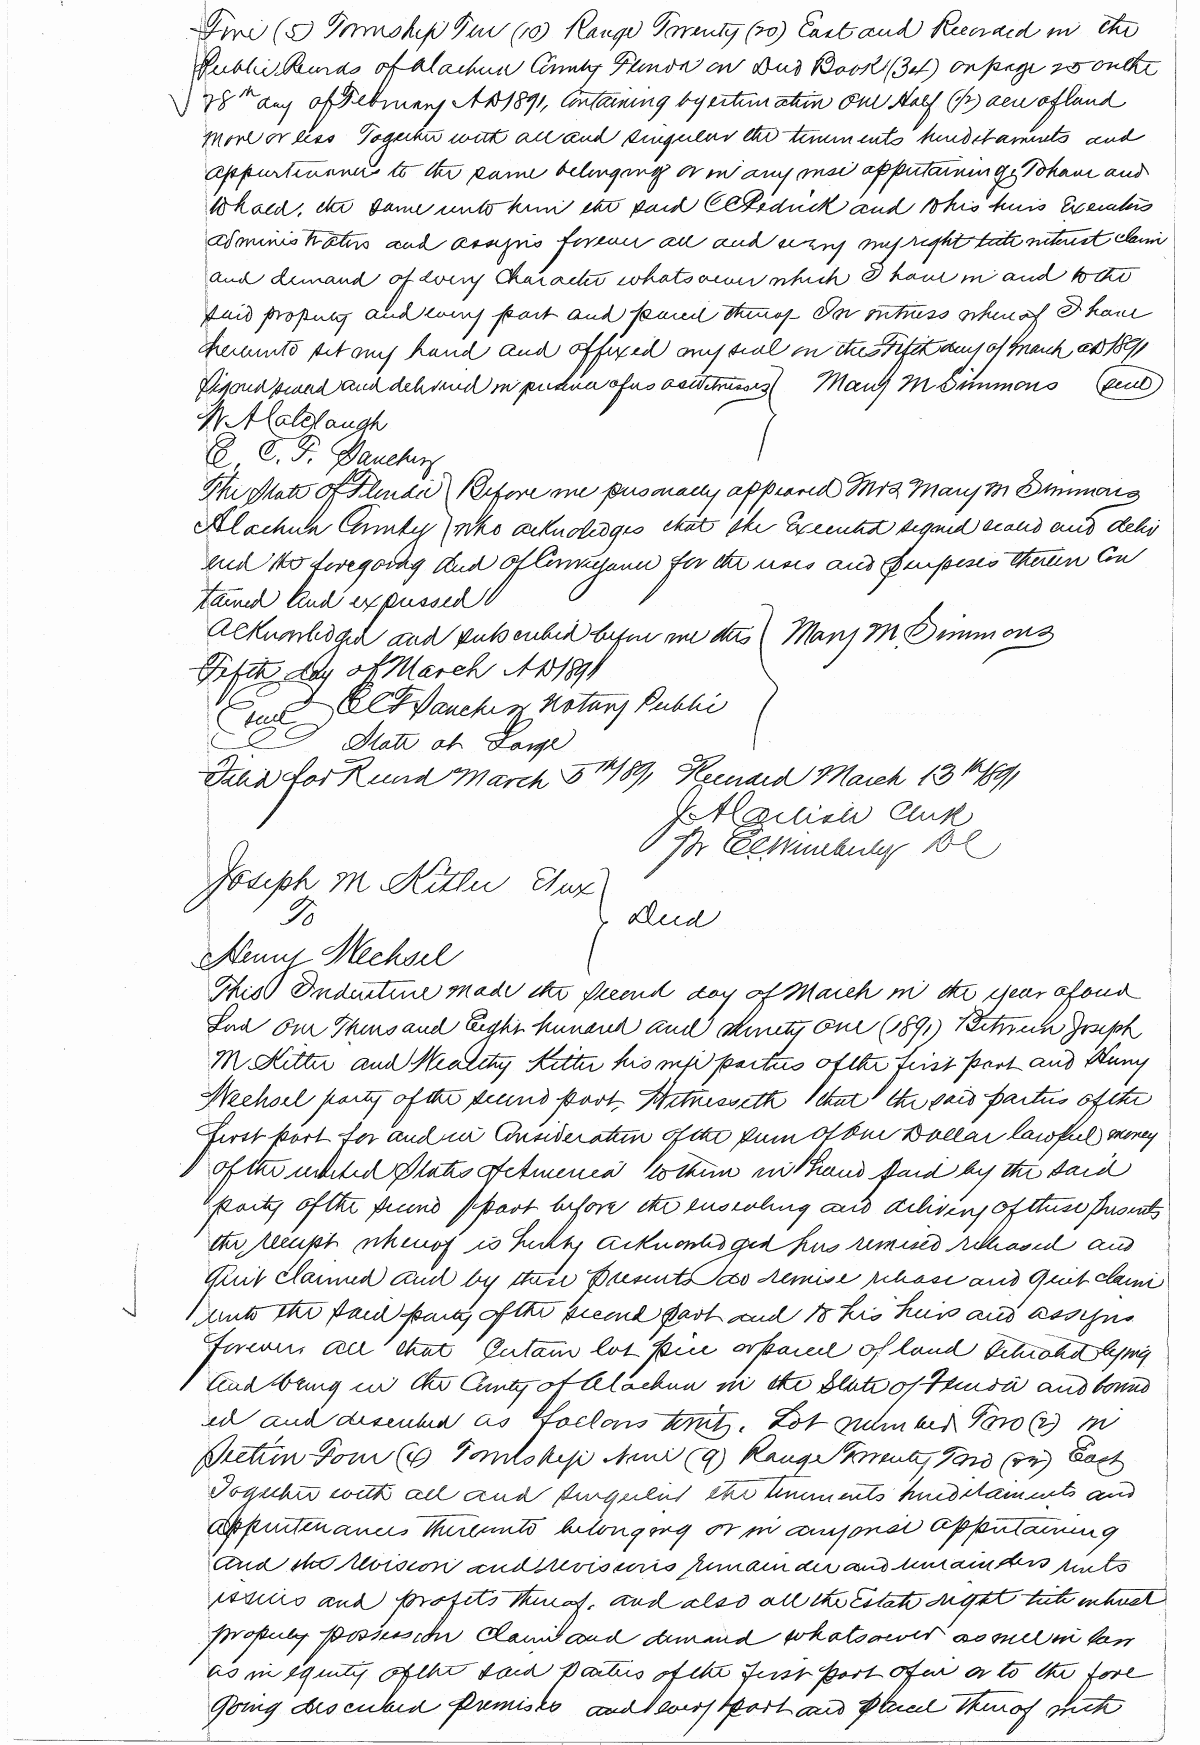 Five (5) Township Ten (10) Range Twenty (20) East and Recorded in the
Public Records of Alachua County Florida on Deed Book (34) on page 25 on the
28th day of February AD 1891, Containing by estimation One Half (1/2) acre of land
more or less Together with all and singular the tenements hereditaments and
appurtenances to the same belonging or in any wise appertaining, To have and
to hold, the same unto him the said C C Pedrick and to his heirs Executors
administrators and assigns forever all and every my right title interest claim
and demand of every Character whatsoever which I have in and to the
said property and every part and parcel thereof In witness whereof I have
hereunto set my hand and affixed my seal on this Fifth day of March AD 1891
Signed sealed and delivered in presence of us as witnesses } Mary M Simmons (seal)
W. A Colclough
E, C. F. Sanchez
The State of Florida } Before me personally appeared Mrs Mary M Simmons
Alachua County } who acknoledges that she Executed signed sealed and deliv
ered the foregoing deed of Conveyance for the uses and purposes therein Con
tained and expressed
Acknowledged and subscribed before me this } Mary M. Simmons
Fifth day of March AD 1891
Seal E C F Sanchez Notary Public
State at Large
Filed for Record March 5th 1891 Recorded March 13th 1891
J. A Carlisle Clerk
Pr E C Wimberly DC
Joseph M Kitler Etux
To } Deed
Henry Wechsel
This Indenture made the second day of March in the year of our
Lord One Thousand Eight hundred and ninety one (1891) Between Joseph
M Kitler and Wealthy Kitler his wife parties of the first part and Henry
Wechsel party of the second part, Witnesseth that the said parties of the
first part for and in Consideration of the sum of One Dollar lawful money
of the united States of America to them in hand paid by the said
party of the second part before the ensealing and delivery of these presents
the receipt whereof is hereby acknowledged has remised released and
quit claimed and by these presents do remise release and quit claim
unto the said party of the second part and to his heirs and assigns
forever, all that Certain lot piece or parcel of land situated lying
and being in the County of Alachua in the State of Florida and bound
ed and described as follows towit, Lot number Two (2) in
Section Four (4) Township Nine (9) Range Twenty Two (22) East
Together with all and singular the tenements hereditaments and
appurtenances thereunto belonging or in anywise appertaining
and the revision and revisions remainder and remainders rents
issues and profits thereof, and also all the Estate right title interest
property possession claim and demand whatsoever as well in law
as in equity of the said parties of the first part of in or to the fore
going described premises and every part and parcel thereof with